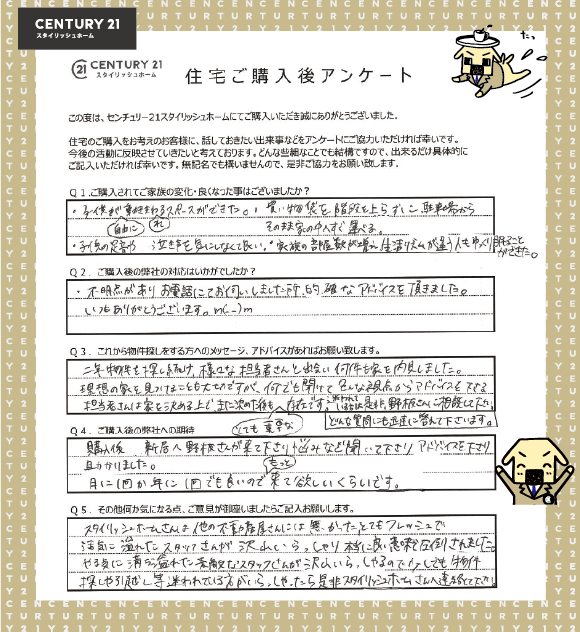 CENTURY 21
スタイリッシュホーム
たっ
CENTURY 21
スタイリッシュホーム
住宅ご購入後アンケート
この度は、センチュリー21スタイリッシュホームにてご購入いただき誠にありがとうございました。
住宅のご購入をお考えのお客様に、話しておきたい出来事などをアンケートにご協力いただければ幸いです。
今後の活動に反映させていきたいと考えております。どんな些細なことでも結構ですので、出来るだけ具体的に
ご記入いただければ幸いです。無記名でも構いませんので、是非ご協力をお願い致します。
Q1.ご購入されてご家族の変化・良くなった事はございましたか?
・子供が動きまわるスペースができた。・買い物袋を階段を上らずに駐車場から
自由に
そのまま家の中へすぐ運べる。
・子供の足音や 泣き声を気にしなくて良い。・家族の部屋数が増え生活リズムが違う人もゆっくり眠ること
ができた。
Q2.ご購入後の弊社の対応はいかがでしたか?
・不明点がありお電話にてお伺いしました所、的確なアドバイスを頂きました。
いつもありがとうございます。m(_ _)m
Q3.これから物件探しをする方へのメッセージ、アドバイスがあればお願い致します。
二年物件を探し続け、様々な担当者さんと出会い何件も家を内見しました。
理想の家を見つけることも大切ですが、何でも聞けて色んな視点からアドバイスをくれる
担当者さんは家を決める上で
とても重要な
存在です。迷われている方は是非、野板さんに相談して下さい
どんな質問にも迅速に答えて下さいます。
Q4.ご購入後の弊社への期待
購入後 新居へ野板さんが来て下さり悩みなど聞いて下さりアドバイスを下さり
助かりました。
もっと
月に1回か年に1回でも良いので来て欲しいくらいです。
Q5.その他何か気になる点、ご意見が御座いましたらご記入お願いします。
スタイリッシュホームさんは他の不動産屋さんには無かったとてもフレッシュで
活気に溢れたスタッフさんが沢山いらっしゃり本当に良い意味で圧倒されました。
やる気に満ち溢れた素敵なスタッフさんが沢山いらっしゃるので、少しでも物件
探しや引越し等迷われている方がいらっしゃったら是非スタイリッシュホームさんへ連絡して下さい